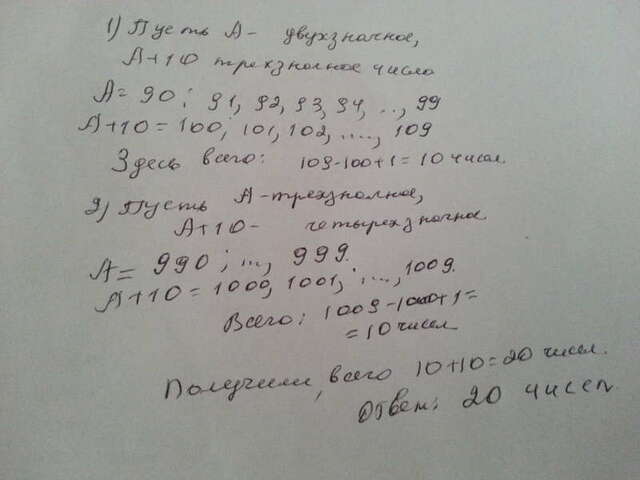 1) Пусть А- двухзначное,
А+10 трехзначное число
А= 90; 91, 92, 93, 94, .., 99
А+10 = 100; 101, 102, ...., 109
Здесь всего: 109-100+1=10 чисел.
2) Пусть А-трехзначное,
А+10- четырехзначное
А= 990; ..., 999.
А+10 = 1000, 1001, ; ..., 1009.
Всего: 1009-1000+1=
=10 чисел
Получили, всего 10+10=20 чисел.
Ответ: 20 чисел